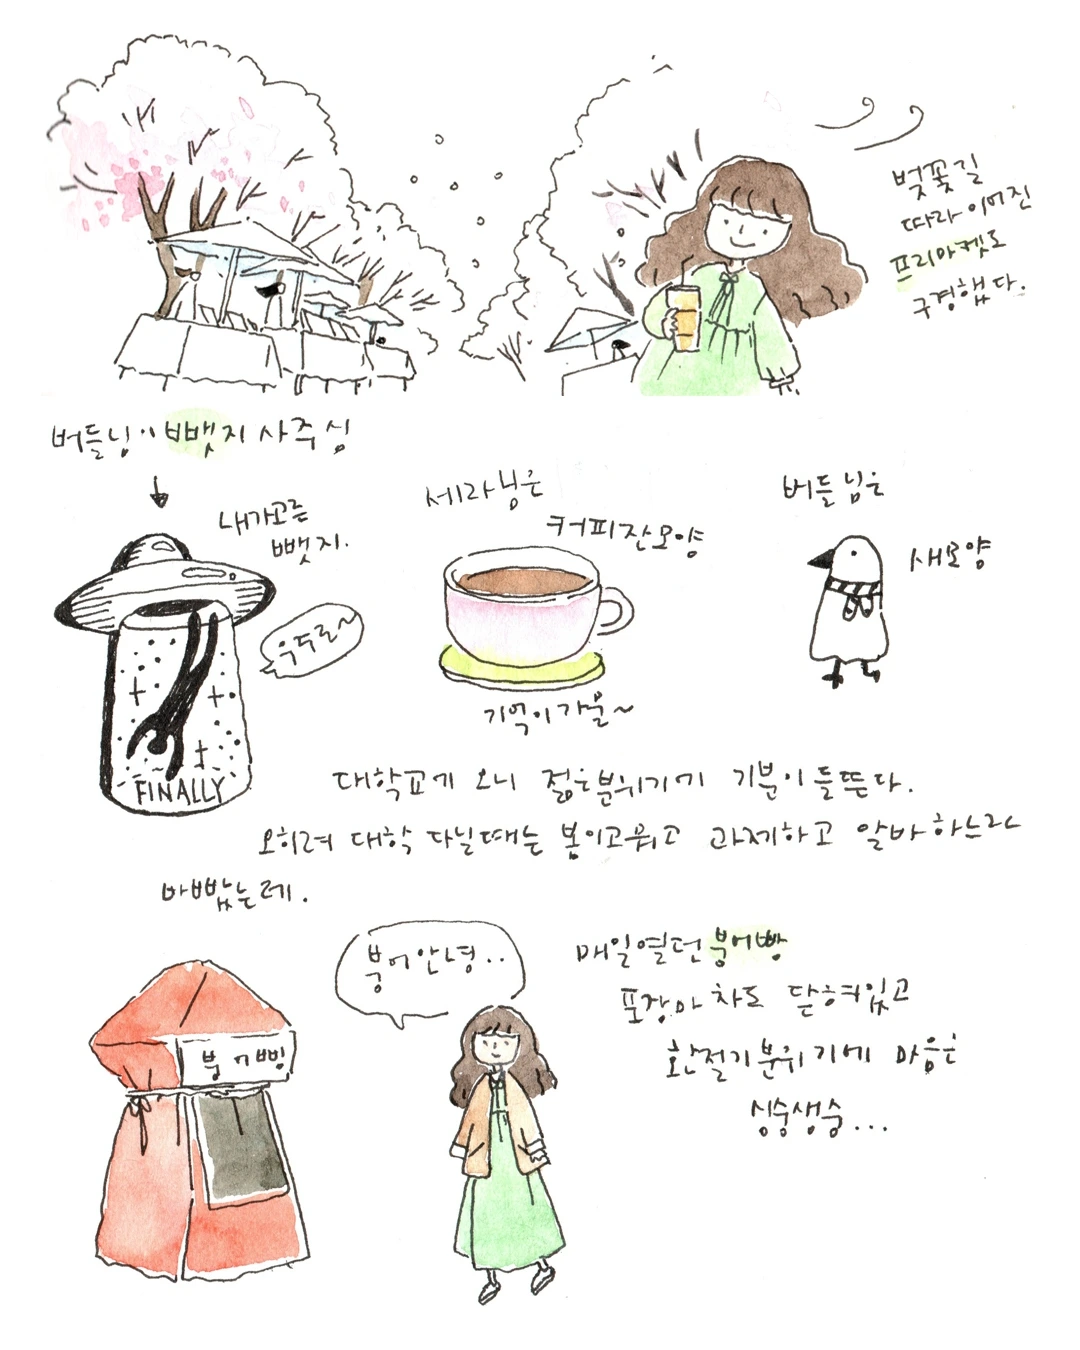 벚꽃길
따라 이어진
프리마켓도
구경했다.
버들님이 뺏지 사주심
내가고른
뺏지.
우주로~
FINALLY
세라님은
커피잔모양
기억이가물~
버들님은
새모양
대학교에 오니 젊은분위기에 기분이 들뜬다.
오히려 대학 다닐때는 봄이고뭐고 과제하고 알바하느라
바빴는데.
붕어안녕..
붕어빵
매일열던 붕어빵
포장마차도 닫혀있고
환절기분위기에 마음은
싱숭생숭...